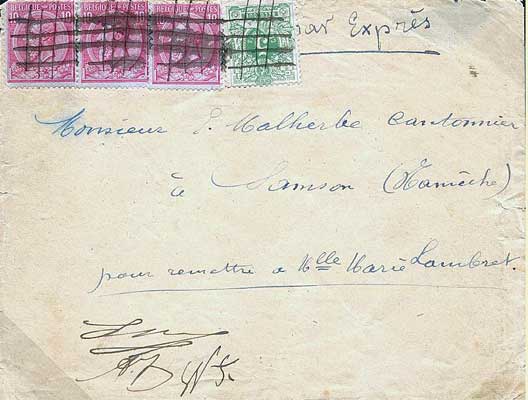 BELGIQUE POSTES BELGIQUE POSTES BELGIQUE POSTES
10 10 10 10 10 10
par Exprès
Monsieur E. Malherbe Cantonnier
à Samson (Namèche)
pour remettre a Mlle Marie Lambret